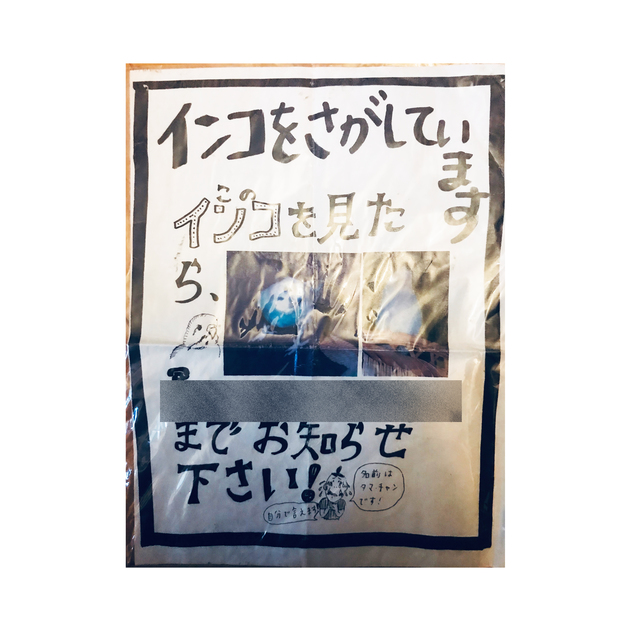 インコをさがしてい
ます
この
インコを見た
ら、
まで お知らせ
下さい!
名前は
タマチャン
です!
自分で言えます